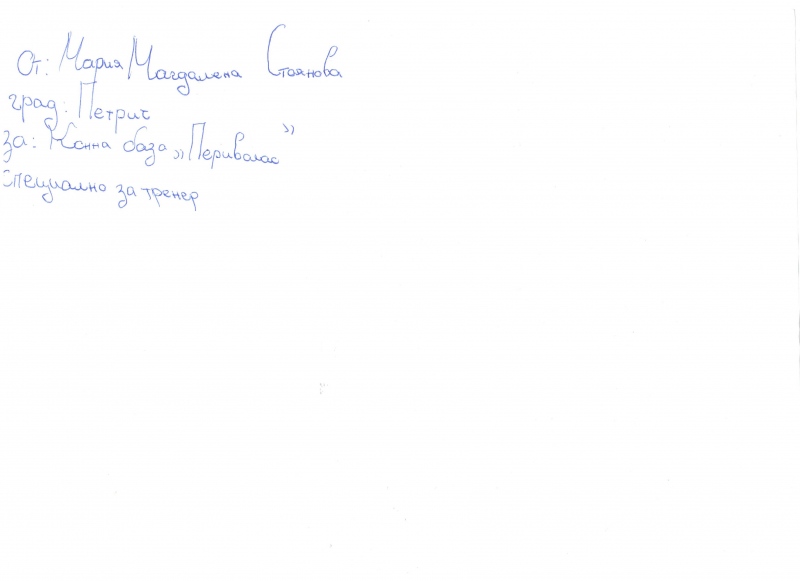 От: Мария Магдалена Стоянова
град: Петрич
за: Конна база „Перивалас”
Специално за тренер